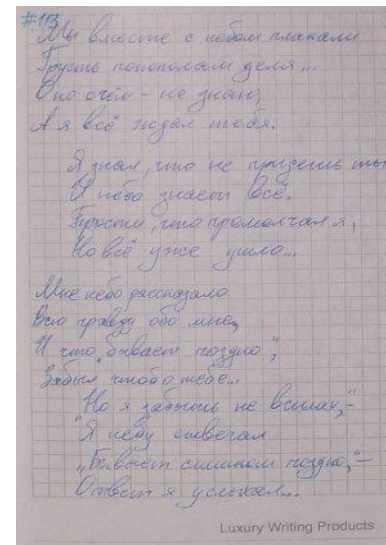 #113
Мы вместе с небом плакали
Грусть попополам деля...
Оно о чём - не знаю,
А я всё ждал тебя.
Я знал, что не придёшь ты
И небо знает всё.
Прости, что промолчал я,
Но всё уже ушло...
Мне небо рассказало
Всю правду обо мне,
И что "бывает поздно",
Забыл чтоб о тебе...
"Но я забыть не в силах," -
Я небу отвечал
"Бывает слишком поздно," -
Ответ я услыхал...
Luxury Writing Products